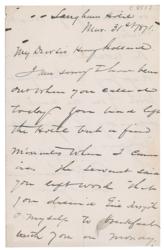 Langham Hotel
Mar. 31st 1871.
My Dear Sir Henry Holland
I am sorry I have been
out when you called
today. You had left
the Hotel but a few
minutes when I came
in. The servant said
you left word that
you desired Gis
& myself to breakfast
with you on Monday